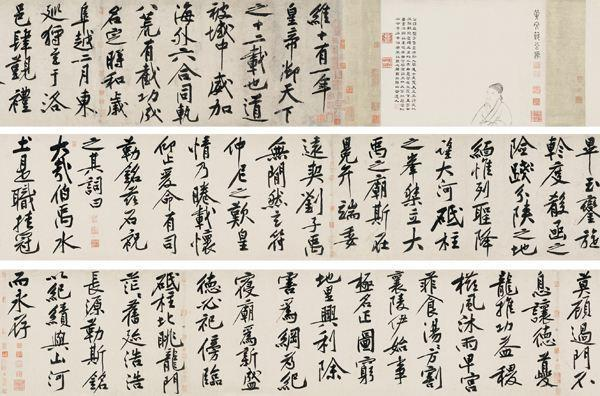 黃文節公像
維十有一年
皇帝御天下
之十二載也道
被域中威加
海外六合同軌
八荒有截功成
名定時和歲
阜越二月東
巡狩至于洛
邑肆覲禮
畢玉鑾旋
軫度殽函之
險踐分陝之地
緬惟列聖降
望大河砥柱
之峯桀立大
禹之廟斯在
冕弁端委
遠契劉子禹
無間然玄符
仲尼之歎皇
情乃睠載懷
仰止爰命有司
勒銘茲石祝
之其詞曰
大哉伯禹水
土是職挂冠
莫顧過門不
息讓德夔
龍推功益稷
櫛風沐雨卑宮
菲食湯湯方割
襄陵伊始事
極名正圖窮
地里興利除
害爲綱爲紀
寢廟爲新盛
德必祀傍臨
砥柱北眺龍門
茫茫舊迹浩浩
長源勒斯銘
以紀績與山河
而永存